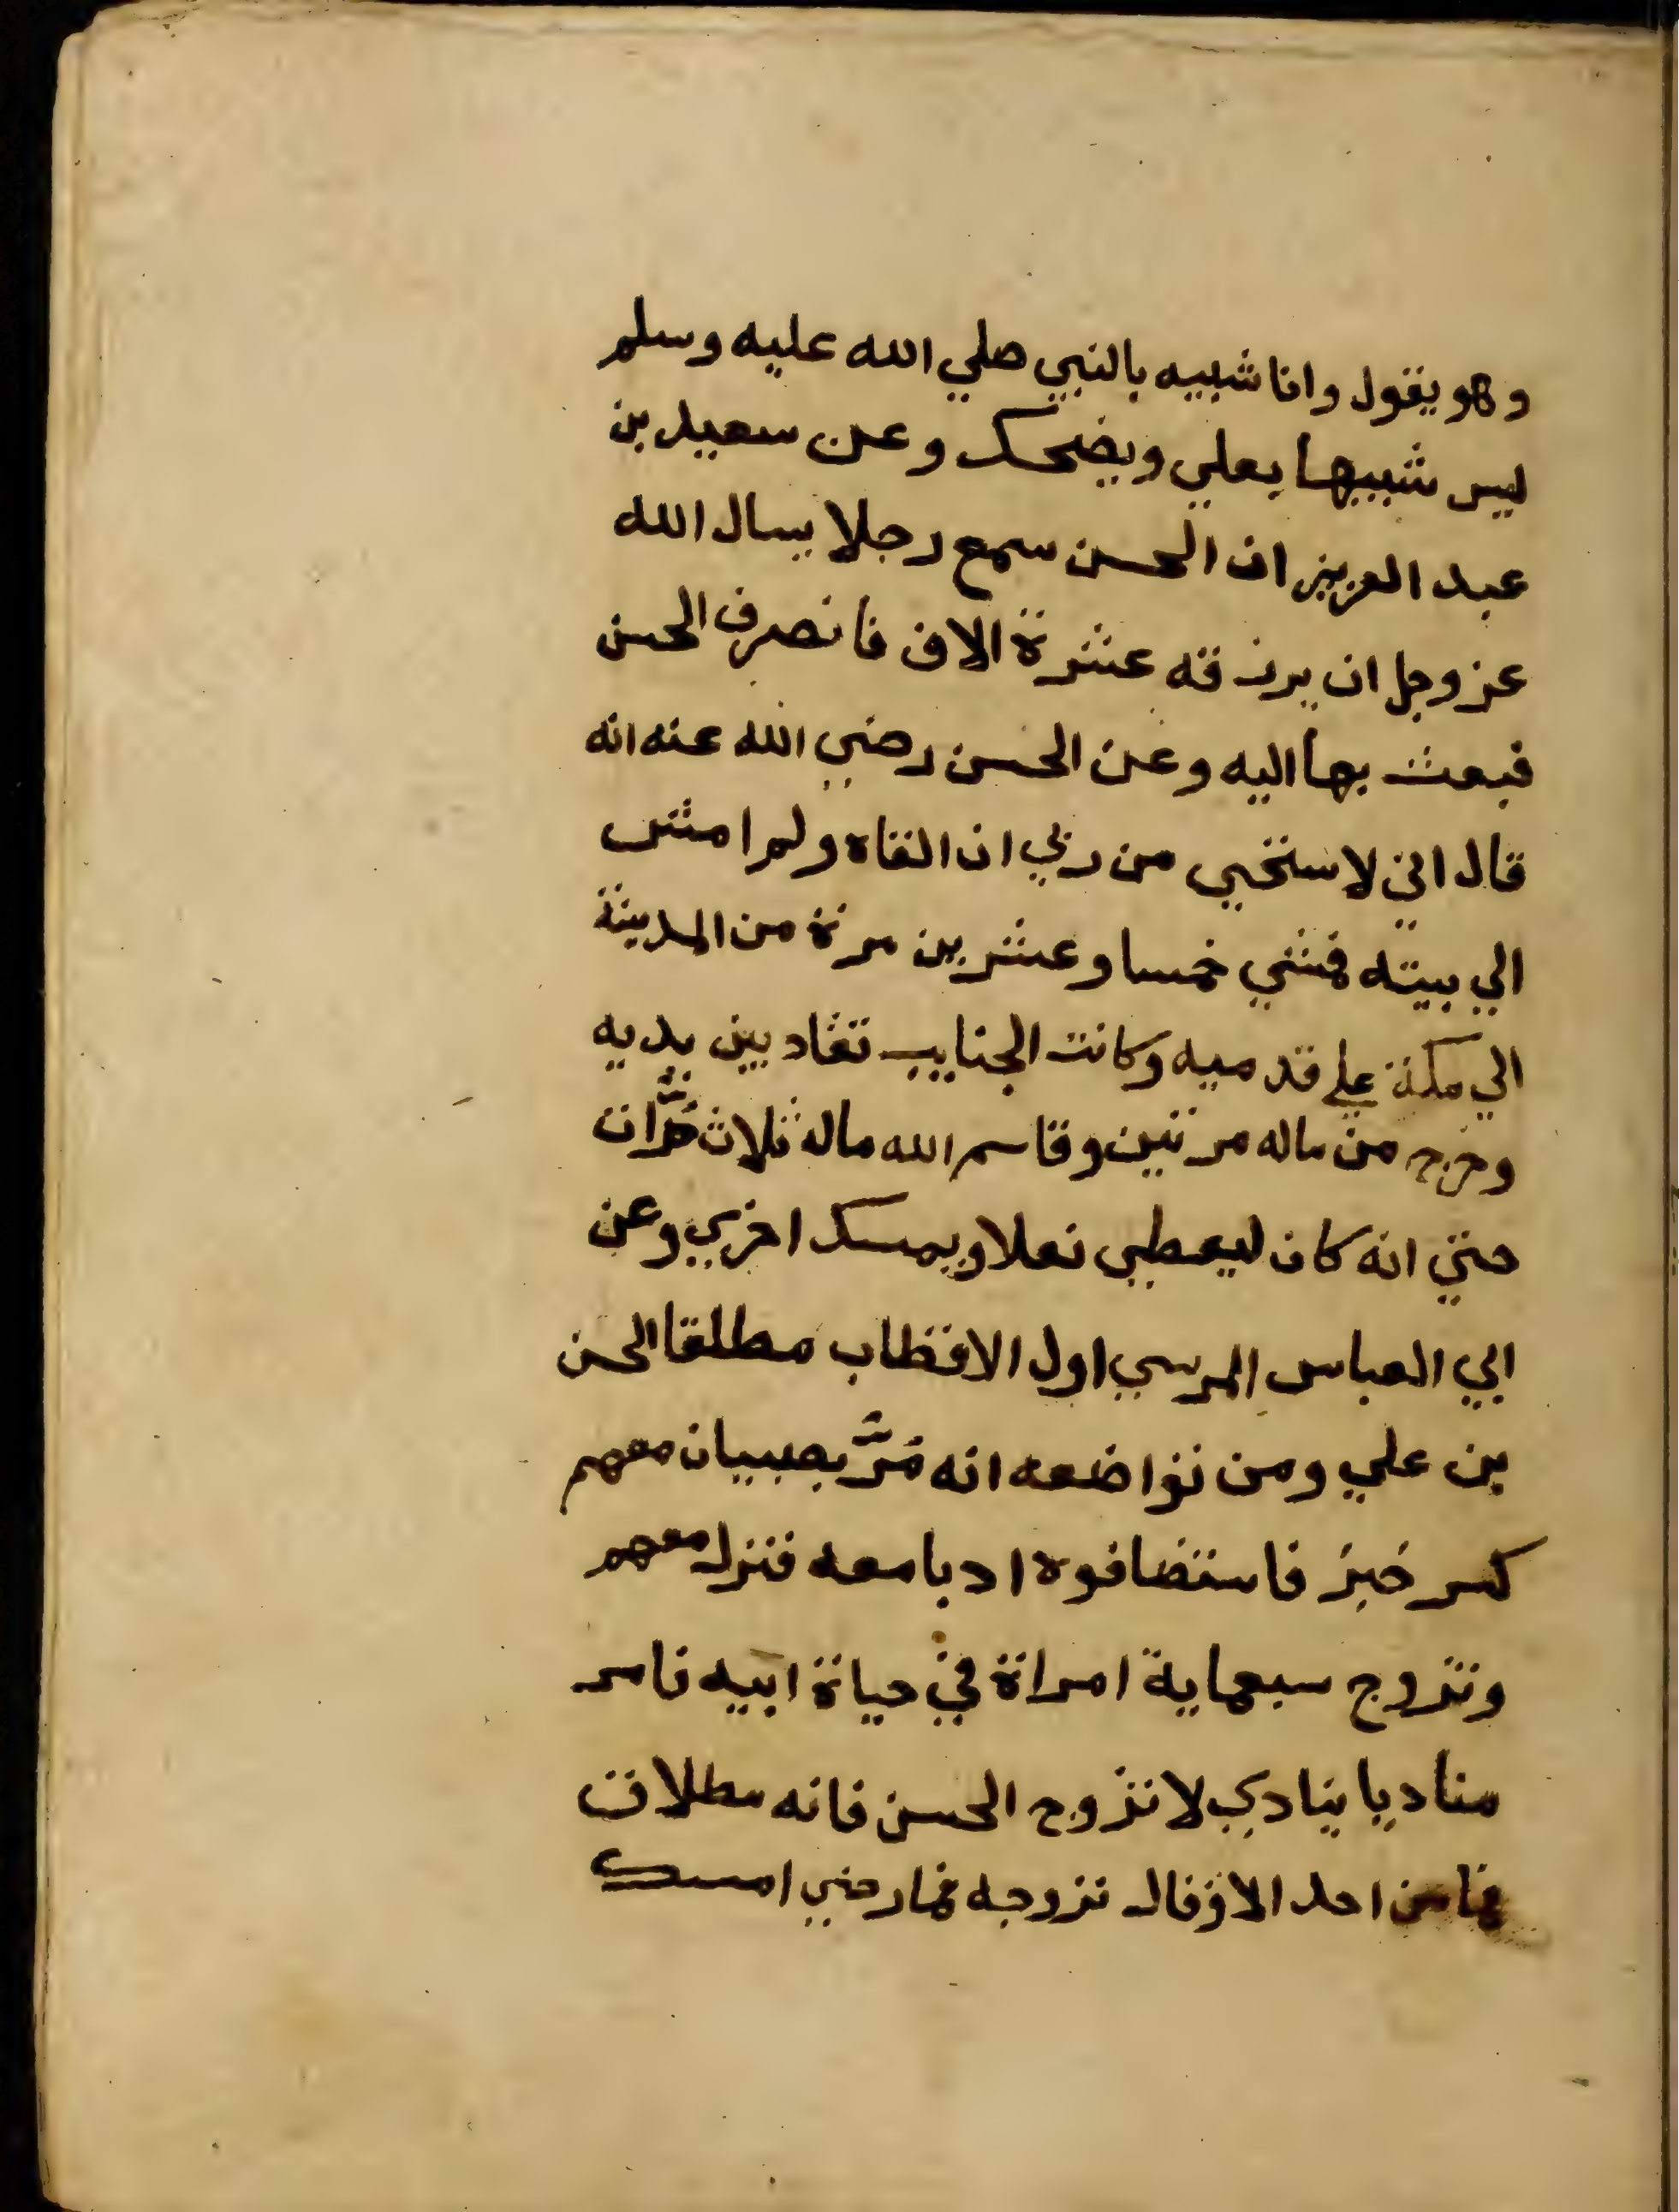 وهو يقول وانا شبيه بالنبي صلي الله عليه وسلم
ليس شبيها بعلي ويضحك وعن سعيد بن
عبد العزيز ان الحسن سمع رجلا يسال الله
عز وجل ان يرزقه عشرة الاف فانصرف الحسن
فبعث بها اليه وعن الحسن رضي الله عنه انه
قال اني لاستحيي من ربي ان القاه ولم امش
الي بيته فمشي خمسا وعشرين مرة من المدينة
الي مكة علي قدميه وكانت الجنايب تقاد بين يديه
وخرج من ماله مرتين وقاسم الله ماله ثلاث مَرَّات
حتي انه كان ليعطي نعلا ويمسك اخري وعن
ابي العباس المرسي اول الاقطاب مطلقا الحسن
بن علي ومن تواضعه انه مَرَّ بصبيان معهم
كسر خبز فاستضافوه ادبا معه فنزل معهم
وتزوج سبعماية امراة في حياة ابيه فامر
مناديا ينادي لا تزوج الحسن فانه مطلاق
فما من احد الا وقال تزوجه فما رضي امسك